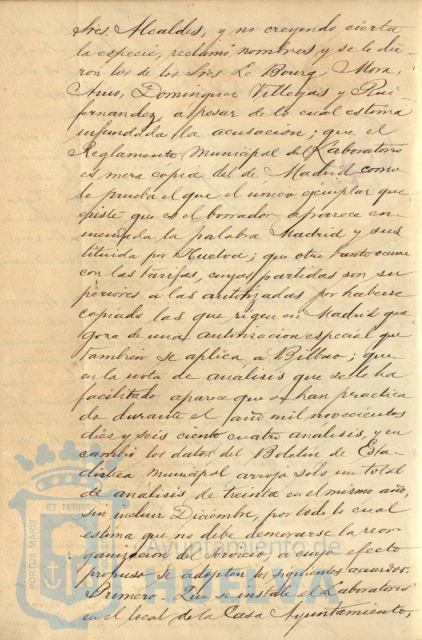 Sres. Alcaldes, y no creyendo cierta
la especie, reclamó nombres y se le die-
ron los de los Sres Le Bourg, Mora,
Domínguez Villegas y Rui-
fernandez a pesar de lo cual estima
infundada la acusación; que el
Reglamento Municipal del Laboratorio
es mera copia del de Madrid como
lo prueba el que el unico ejemplar que
existe que es el borrador, aparece en-
mendada la palabra Madrid y sus-
tituida por Huelva; que otro tanto ocurre
con las tarifas, cuyas partidas son su-
periores a las autorizadas por haberse
copiado las que rigen en Madrid que
goza de una autorizacion especial que
tambien se aplica a Bilbao; que
en la nota de análisis que se le ha
facilitado aparece que se han practica
do durante el año mil novecientos
diez y seis ciento cuatro análisis, y en
cambio los datos del Boletín de Esta-
dística Municipal arroja solo un total
de análisis de treinta en el mismo año,
sin incluir Diciembre, por todo lo cual
estima que no debe demorarse la reor-
ganizacion del servicio, a cuyo efecto
propuso se adopten los siguientes acuerdos.
Primero. Que se instale el Laboratorio
en el local de la Casa Ayuntamiento,
PORTUS MARIS
ET TERRÆ
Ayuntamiento de
HUELVA